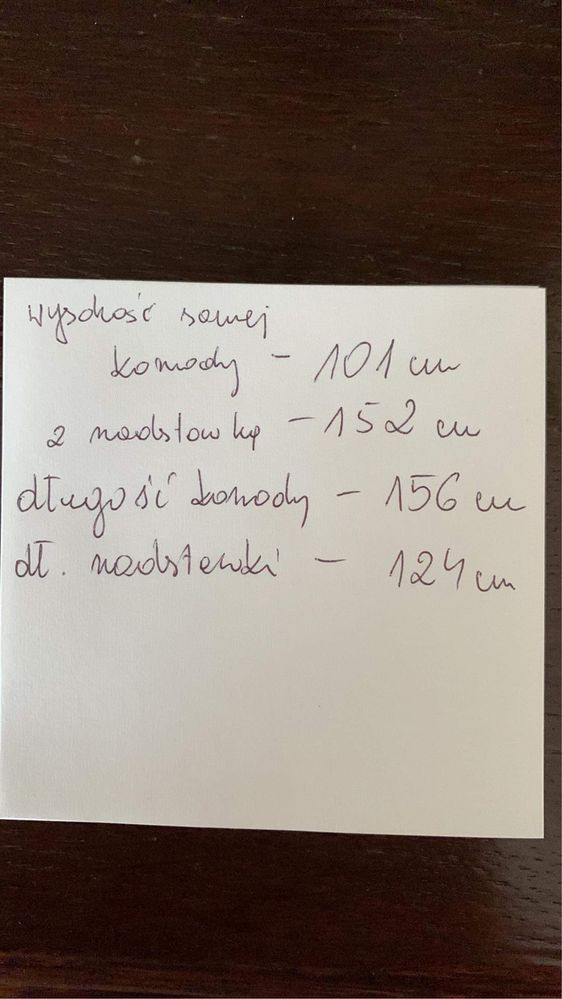 wysokość samej
komody - 101 cm
z nadstawką - 152 cm
długość komody - 156 cm
dł. nadstawki - 124 cm